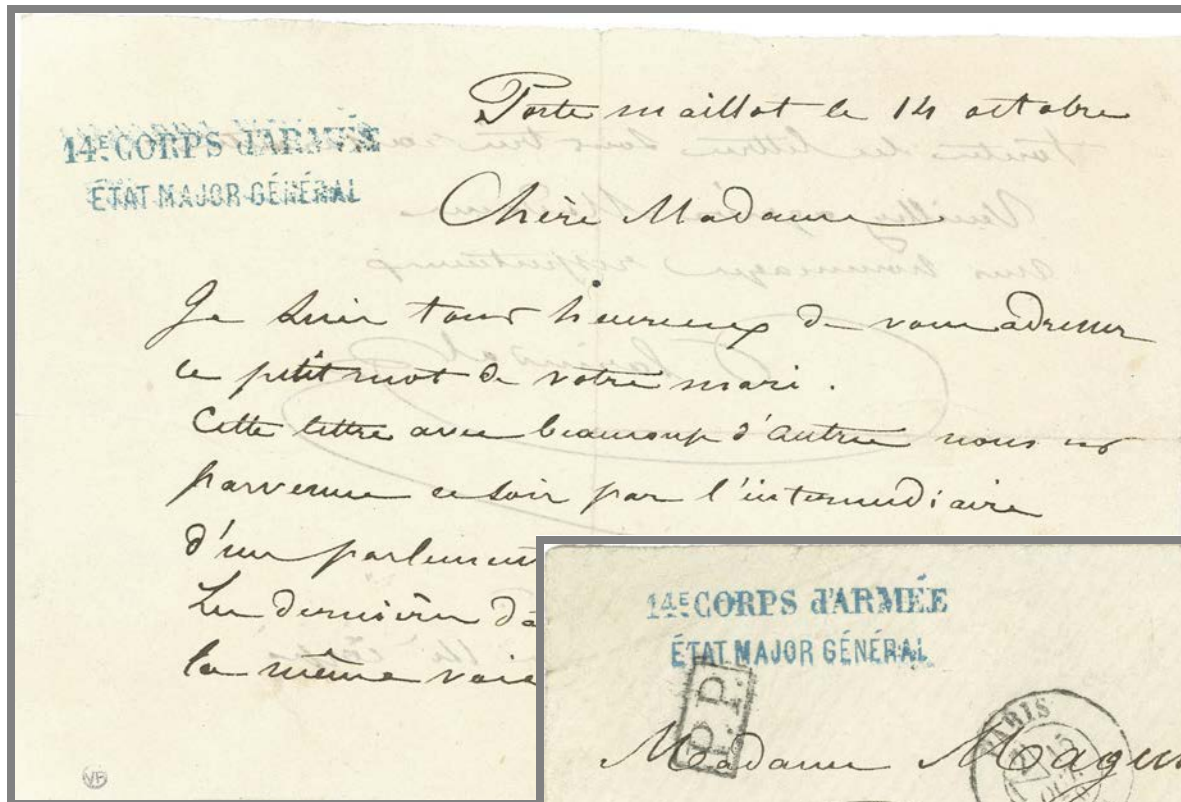 14E CORPS d'ARMÉE
ÉTAT MAJOR GÉNÉRAL
Porte maillot le 14 octobre
Chère Madame
Je suis tout heureux de vous adresser
ce petit mot de votre mari.
Cette lettre avec beaucoup d'autre nous est
parvenue ce soir par l'intermédiaire
d'un parlement
Les dernières
la même voie
VP
14E CORPS d'ARMÉE
ÉTAT MAJOR GÉNÉRAL
P.P.
PARIS
Madame